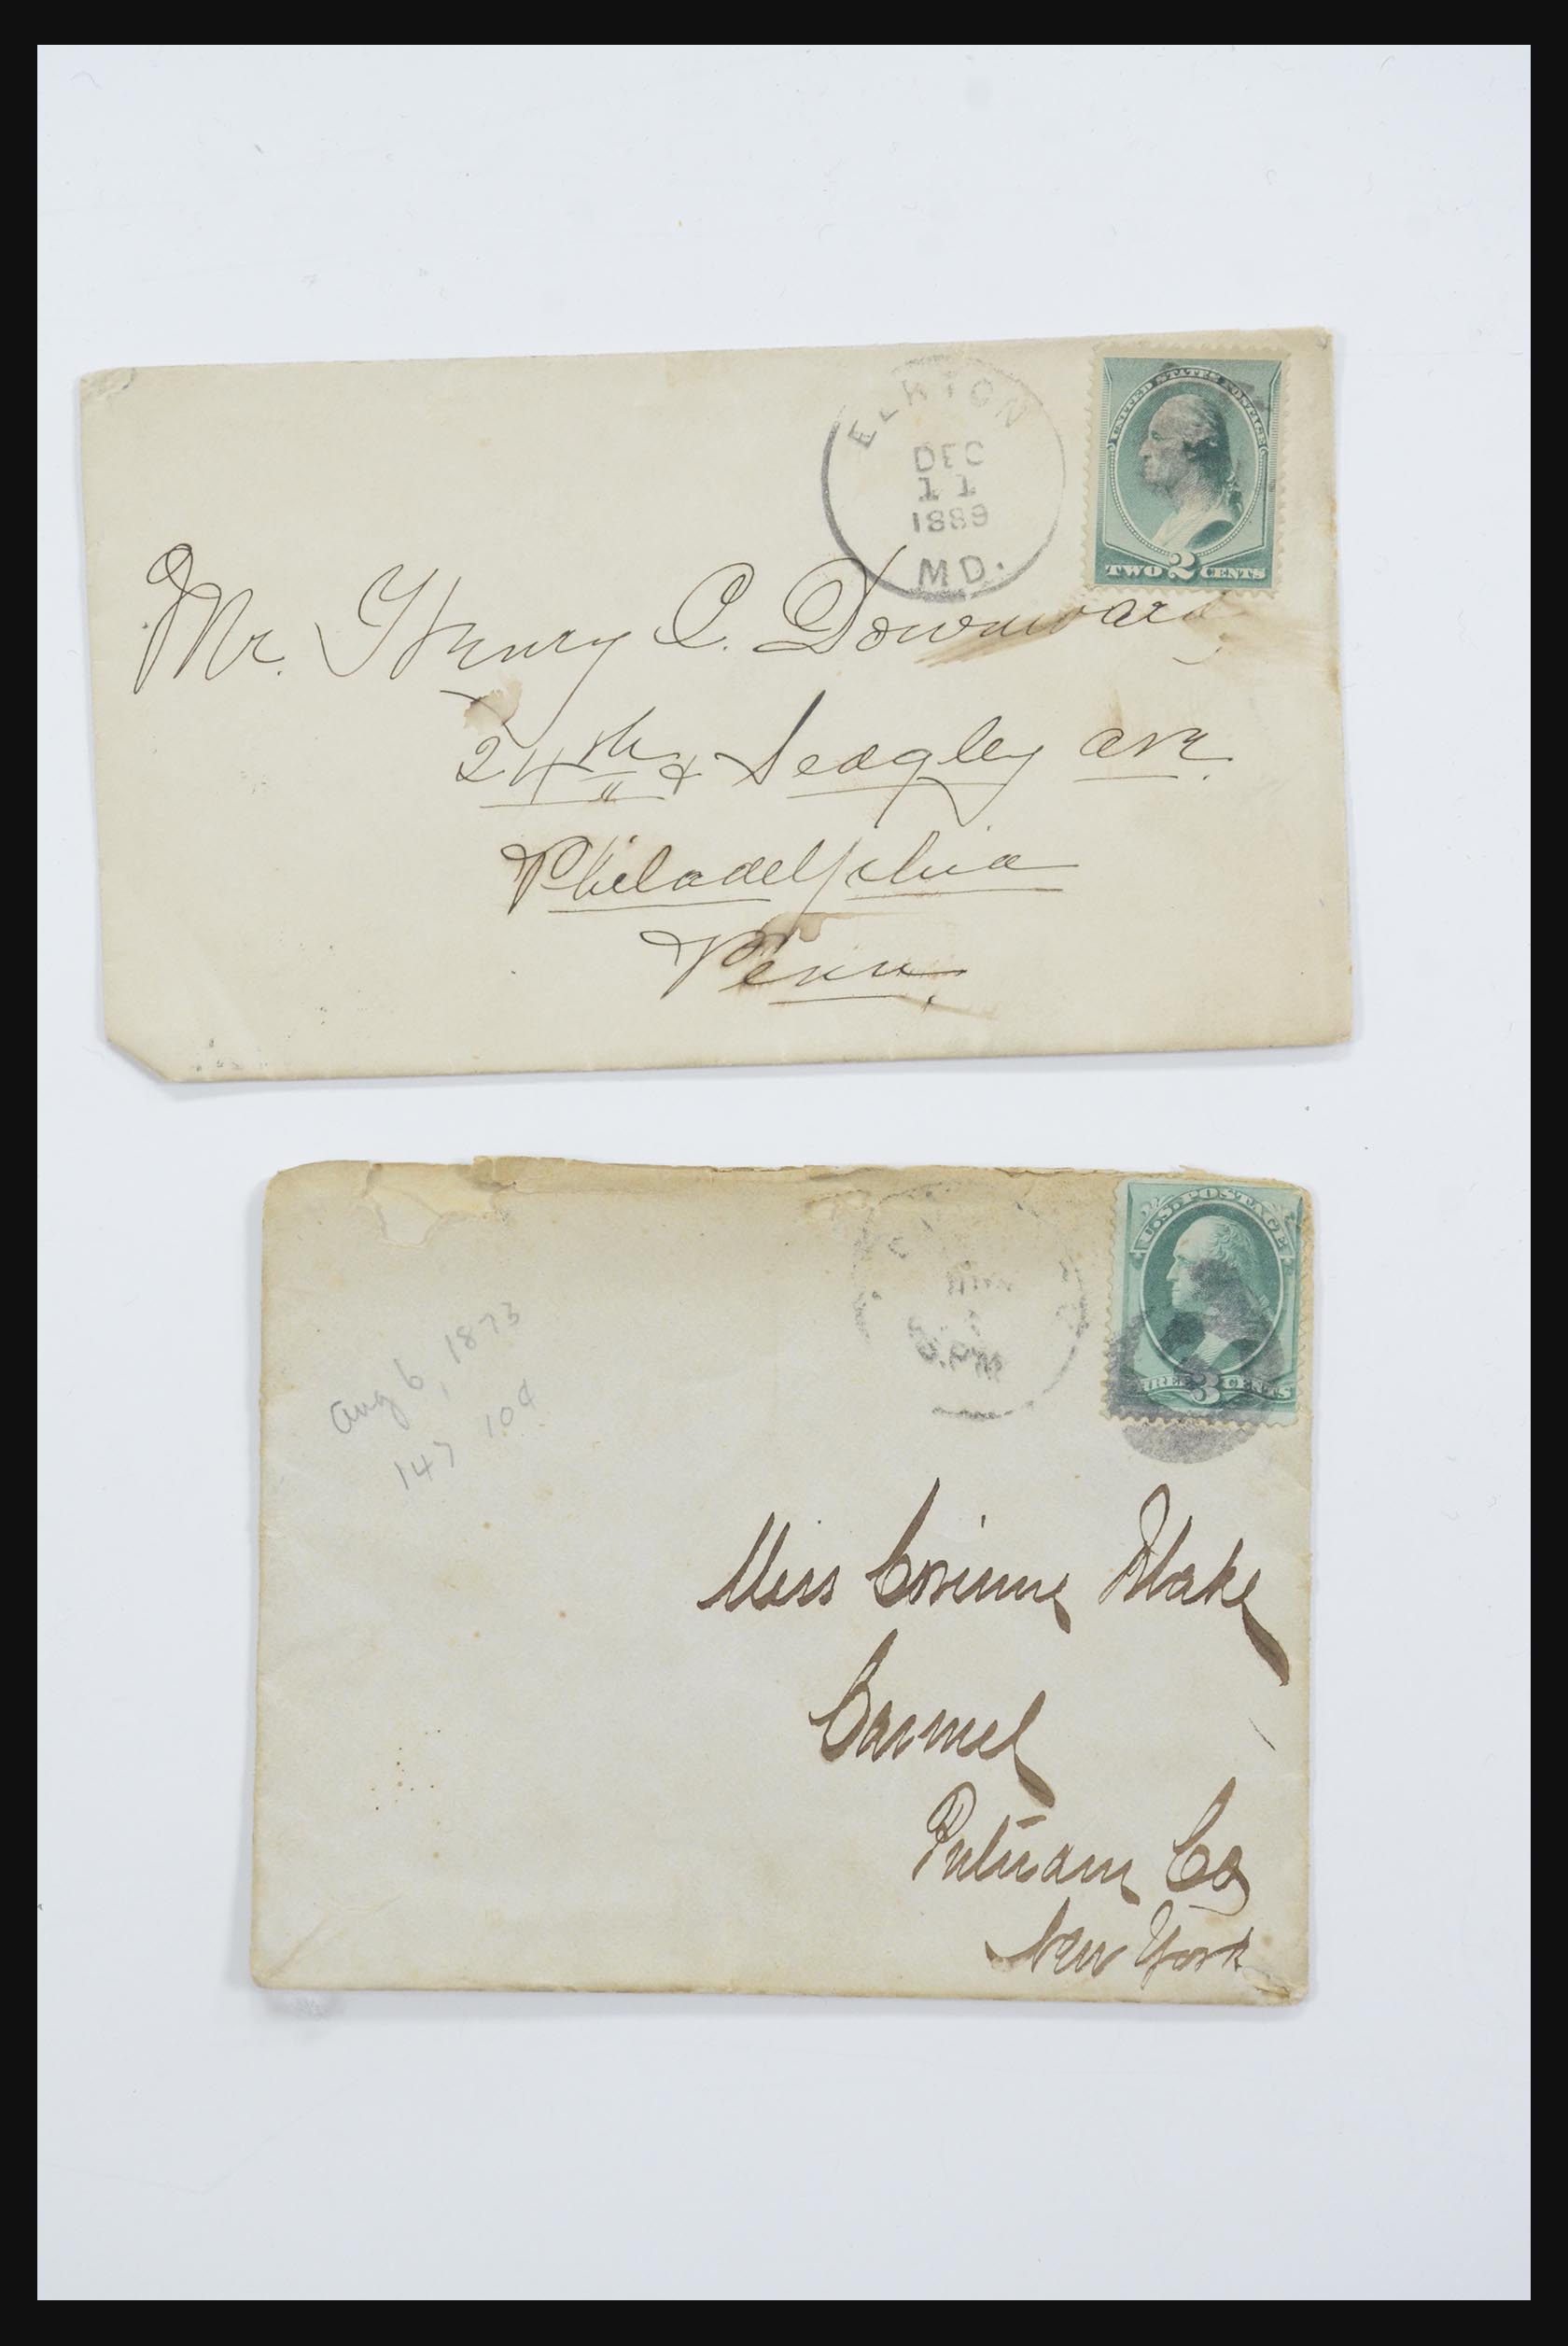 ELKTON
DEC
11
1889
MD.
UNITED STATES POSTAGE
TWO 2 CENTS
Mr. Henry C. Downward,
24th & Sedgley ave.
Philadelphia
Penn.
U.S. POSTAGE
THREE 3 CENTS
Aug 6, 1873
147 10¢
Miss Corinne Blake
Carmel
Putnam Co
New York